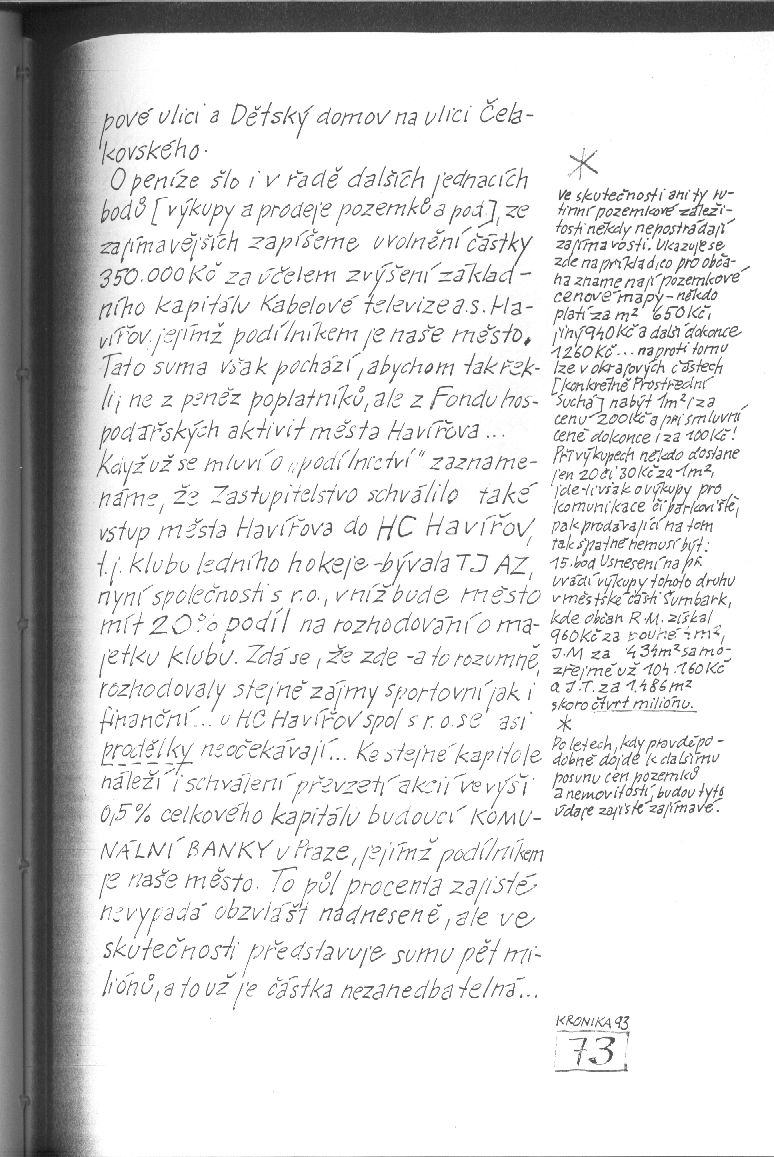 pové ulici a Dětský domov na ulici Čela-
kovského.
O peníze šlo i v řadě dalších jednacích
bodů [výkupy a prodeje pozemků a pod.], ze
zajímavějších zapíšeme uvolnění částky
350.000 Kč za účelem zvýšení základ-
ního kapitálu Kabelové televize a.s. Ha-
vířov, jejímž podílníkem je naše město.
Tato suma však pochází, abychom tak řek-
li, ne z peněz poplatníků, ale z Fondu hos-
podařských aktivit města Havířova...
Když už se mluví o „podílnictví" zazname-
náme, že Zastupitelstvo schválilo také
vstup města Havířova do HC Havířov,
t.j. klubu ledního hokeje - bývala TJ AZ,
nyní společnosti s r.o., v níž bude město
mít 20% podíl na rozhodování o ma-
jetku klubu. Zdá se, že zde - a to rozumně,
rozhodovaly stejně zájmy sportovní jak i
finanční... u HC Havířov spol s r.o. se asi
prodělky neočekávají... Ke stejné kapitole
náleží i schválení převzetí akcií ve výši
0,5% celkového kapitálu budoucí KOMU-
NÁLNÍ BANKY v Praze, jejímž podílníkem
je naše město. To půl procenta zajisté
nevypadá obzvlášt nadneseně, ale ve
skutečnosti představuje sumu pět mi-
liónů, a to už je částka nezanedbatelná...
*
Ve skutečnosti ani ty ru-
tinní pozemkové záleži-
tosti někdy nepostrádají
zajímavosti. Ukazuje se
zde například co pro obča-
na znamenají pozemkové
cenové mapy - někdo
platí za m² 650 Kč,
jiný 940 Kč a další dokonce
1260 Kč... naproti tomu
lze v okrajových částech
[konkrétně Prostřední
Suchá] nabýt 1m² i za
cenu 200 Kč a při smluvní
ceně dokonce i za 100 Kč!
Při výkupech někdo dostane
jen 20 či 30 Kč za 1m²,
jde-li však o výkupy pro
komunikace či parkoviště,
pak prodávající na tom
tak špatně nemusí být:
15. bod Usnesení na př.
uvádí výkupy tohoto druhu
v městské části Šumbark,
kde občan R.M. získal
960 Kč za pouhé 4 m²,
J.M za 434 m² samo-
zřejmě už 104.160 Kč
a J.T. za 1.486 m²
skoro čtvrt miliónu.
*
Po letech, kdy pravděpo-
dobně dojde k dalšímu
posunu cen pozemků
a nemovitostí, budou tyto
údaje zajisté zajímavé.
KRONIKA 93
73